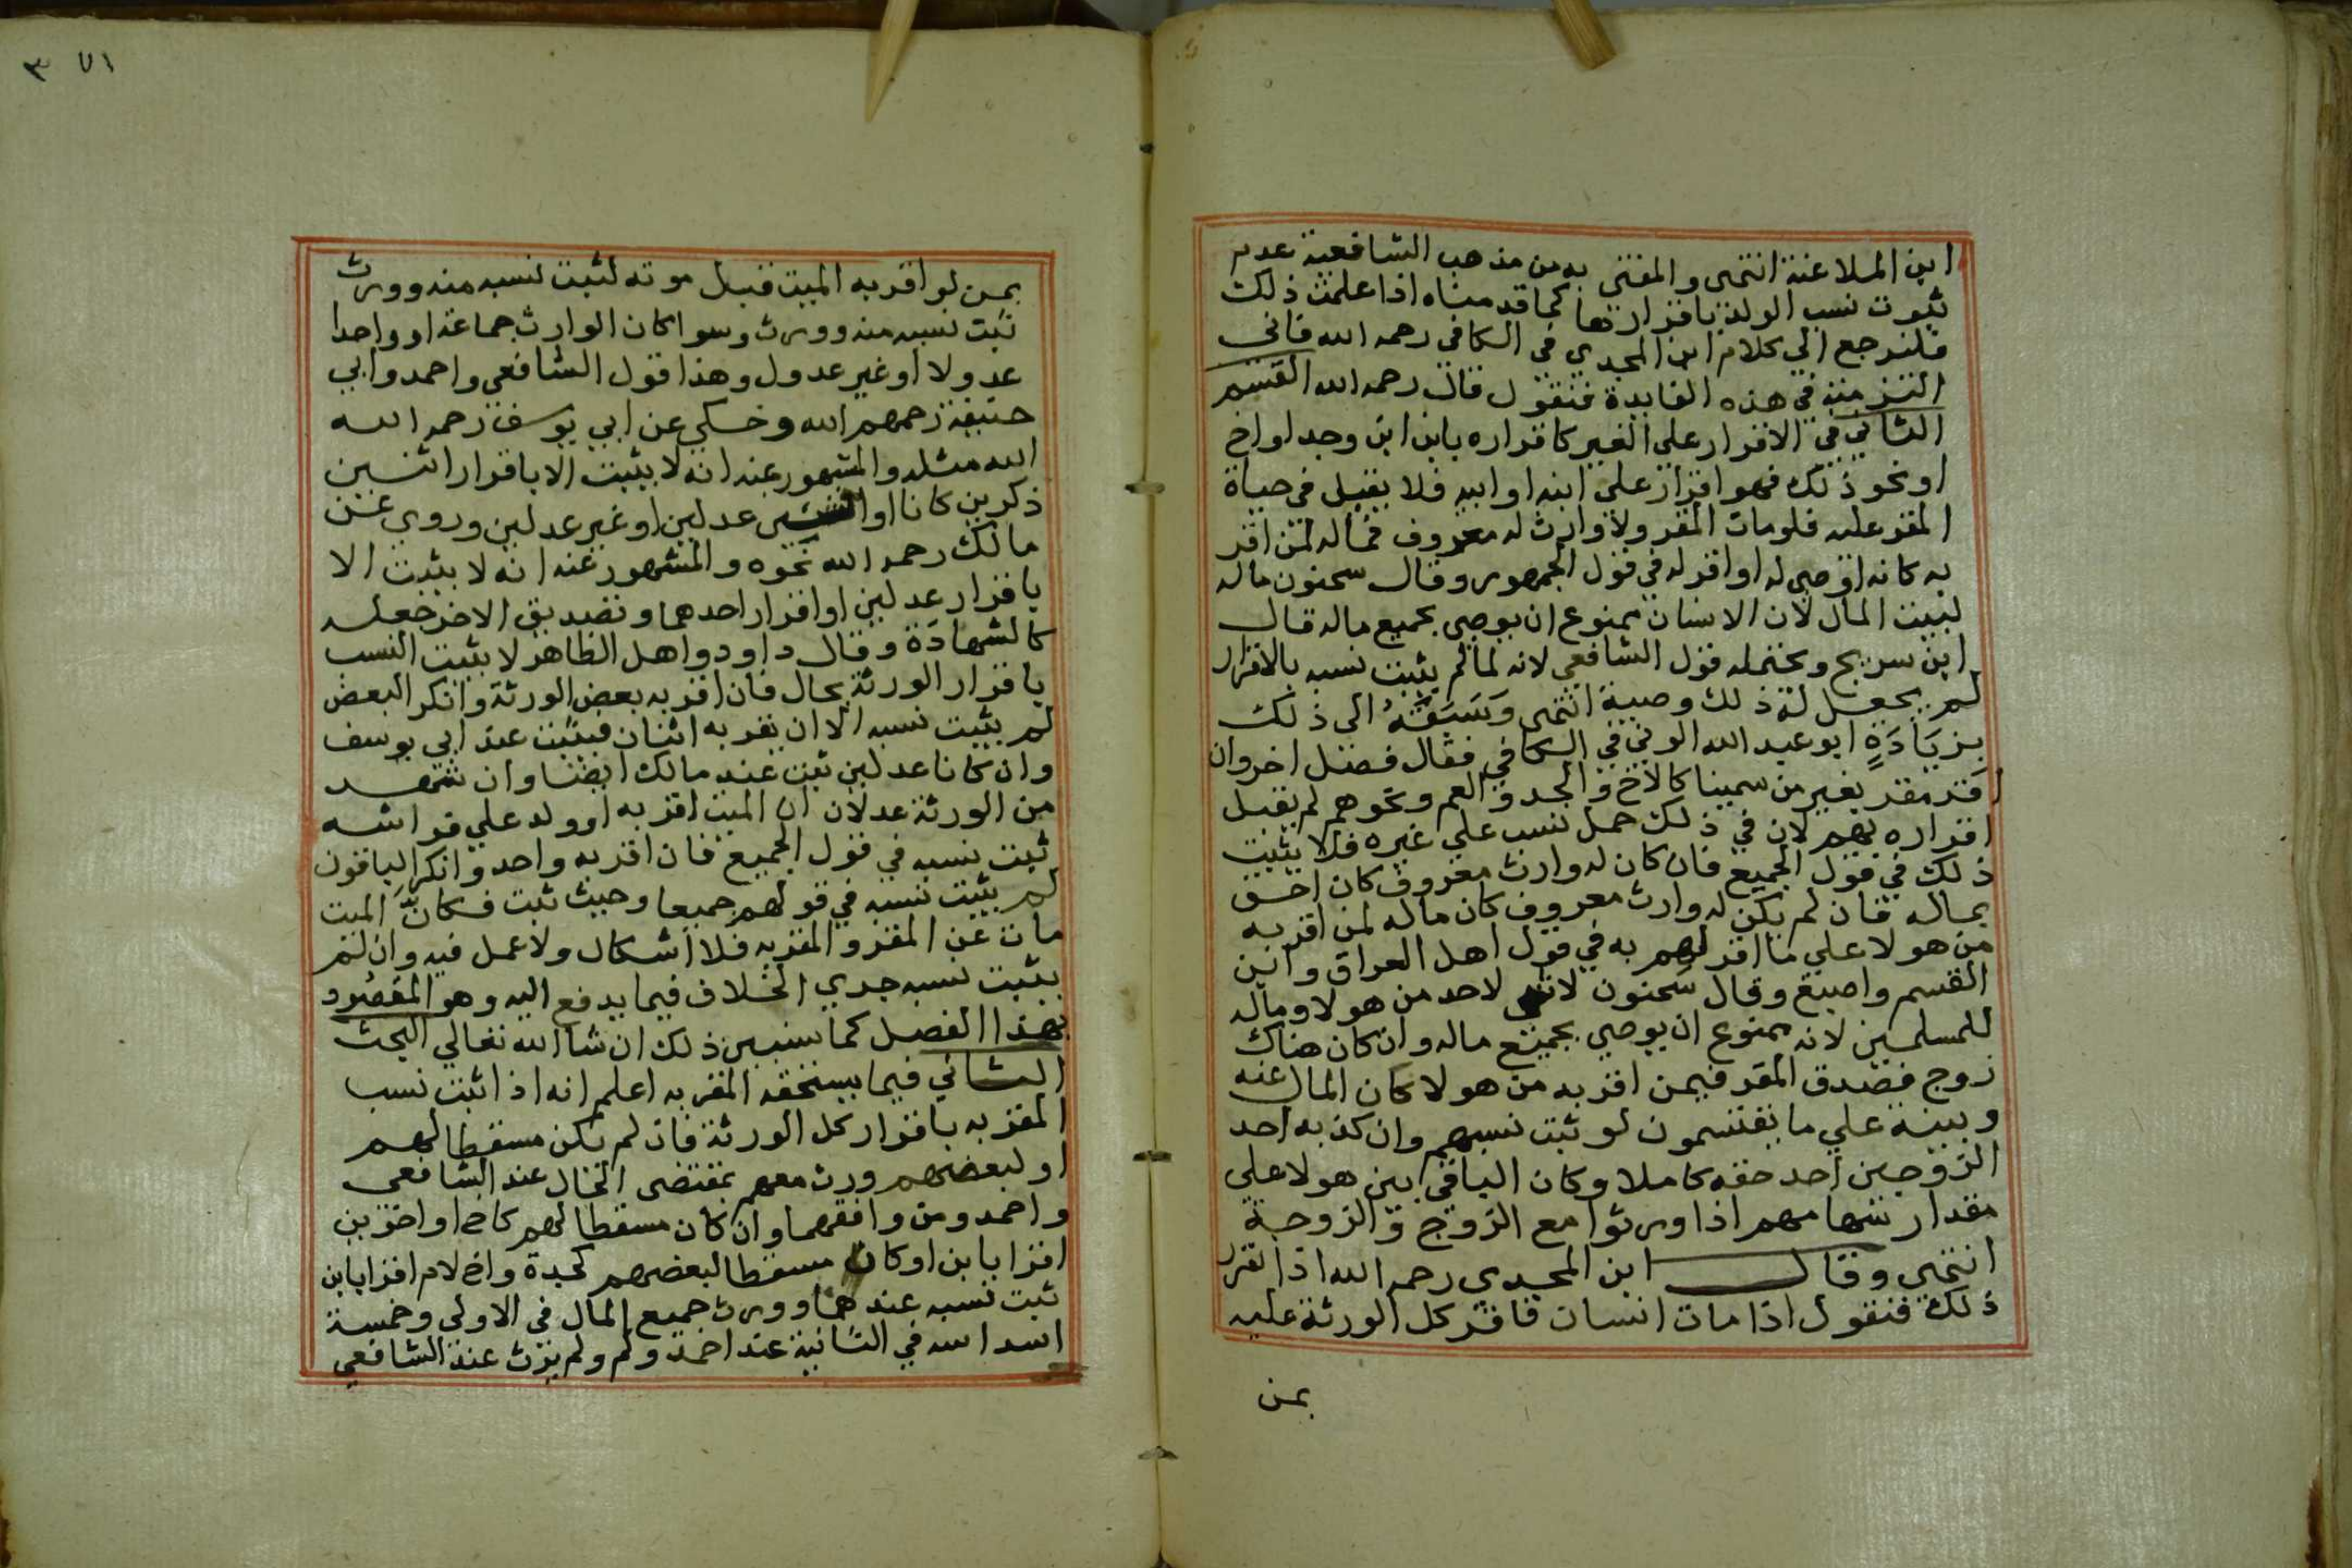 ابن الملاعنة انتهى والمفتى به من مذهب الشافعية عدم
ثبوت نسب الولد باقرارها كما قدمناه اذا علمت ذلك
فلنرجع الي كلام ابن المجدي في الكافي رحمه الله فاني
التزمته في هذه الفايدة فنقول قال رحمه الله القسم
الثاني في الاقرار علي الغير كاقراره بابن ابن وجد او اخ
او نحو ذلك فهو اقرار علي ابنه او ابيه فلا يقبل في حياة
المقر عليه فلو مات المقر ولا وارث له معروف فماله لمن اقر
به كانه اوصي له او اقر له في قول الجمهور وقال سحنون ماله
لبيت المال لان الانسان ممنوع ان يوصي بجميع ماله قال
ابن سريج ويحتمله قول الشافعي لانه لما لم يثبت نسبه بالاقرار
لم يجعل له ذلك وصية انتهى وَسَبَقَهُ الى ذلك
بزيَادَةٍ ابو عبد الله الوني في الكافي فقال فصل اخر وان
اقر مقر بغير من سمينا كالاخ والجد والعم ونحوهم لم يقبل
اقراره بهم لان في ذلك حمل نسب علي غيره فلا يثبت
ذلك في قول الجميع فان كان له وارث معروف كان احق
بماله فان لم يكن له وارث معروف كان ماله لمن اقر به
من هولا علي ما اقر لهم به في قول اهل العراق وابن
القسم واصبغ وقال سحنون لا شى لاحد من هولا وماله
للمسلمين لانه ممنوع ان يوصي بجميع ماله وان كان هناك
زوج فصدق المقر فيمن اقر به من هولا كان المال عنه
وبينه علي ما يقتسمون لو ثبت نسبهم وان كذبه احد
الزوجين اخد حقه كاملا وكان الباقي بين هولا علي
مقدار سهامهم اذا ورثوا مع الزوج والزوجة
انتهى وقال ابن المجدى رحمه الله اذا تقرر
ذلك فنقول اذا مات انسان فاقر كل الورثة عليه
بمن
٣ ٧١
بمن لو اقر به الميت قبل موته لثبت نسبه منه وورث
ثبت نسبه منه وورث وسوا كان الوارث جماعة او واحدا
عدولا او غير عدول وهذا قول الشافعي واحمد وابي
حنيفة رحمهم الله وحكي عن ابي يوسف رحمه الله
الله مثله والمشهور عنه انه لا يثبت الا باقرار اثنين
ذكرين كانا او انثيين عدلين او غير عدلين وروي عن
مالك رحمه الله نحوه والمشهور عنه انه لا يثبت الا
باقرار عدلين او اقرار احدهما وتصديق الاخر جعله
كالشهادَة وقال داود واهل الظاهر لا يثبت النسب
باقرار الورثة بحال فان اقر به بعض الورثة وانكر البعض
لم يثبت نسبه الا ان يقر به اثنان فيثبت عند ابي يوسف
وان كانا عدلين ثبت عند مالك ايضا وان شهد
من الورثة عدلان ان الميت اقر به او ولد علي فراشه
ثبت نسبه في قول الجميع فان اقر به واحد وانكر الباقون
لم يثبت نسبه في قولهم جميعا وحيث ثبت فكانَّ الميت
مات عن المقر والمقر به فلا اشكال ولا عمل فيه وان لم
يثبت نسبه جري الخلاف فيما يدفع اليه وهو المقصُود
بهذا الفصل كما سنبين ذلك ان شا الله تعالي البحث
الثاني فيما يستحقه المقر به اعلم انه اذا ثبت نسب
المقر به باقرار كل الورثة فان لم يكن مسقطا لهم
او لبعضهم ورث معهم بمقتضى الحال عند الشافعي
واحمد ومن وافقهما وان كان مسقطا لهم كاخ او اخوين
اقرا بابن او كان مسقطا لبعضهم كجدة واخ لام اقرا بابن
ثبت نسبه عندهما وورث جميع المال في الاولي وخمسة
اسداسه في الثانية عند احمد ولم ولم يرث عند الشافعي